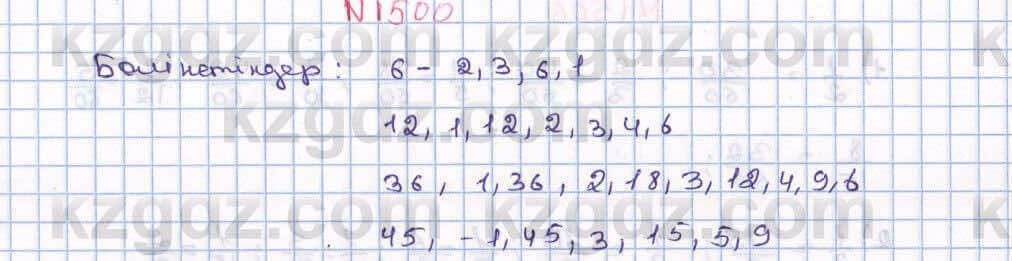 N1500
Бөлінетіндер: 6 - 2, 3, 6, 1
12, 1, 12, 2, 3, 4, 6
36, 1, 36, 2, 18, 3, 12, 4, 9, 6
45, - 1, 45, 3, 15, 5, 9
kzgdz.com kzgdz.com
kzgdz.com
kzgdz.com kzgdz.com